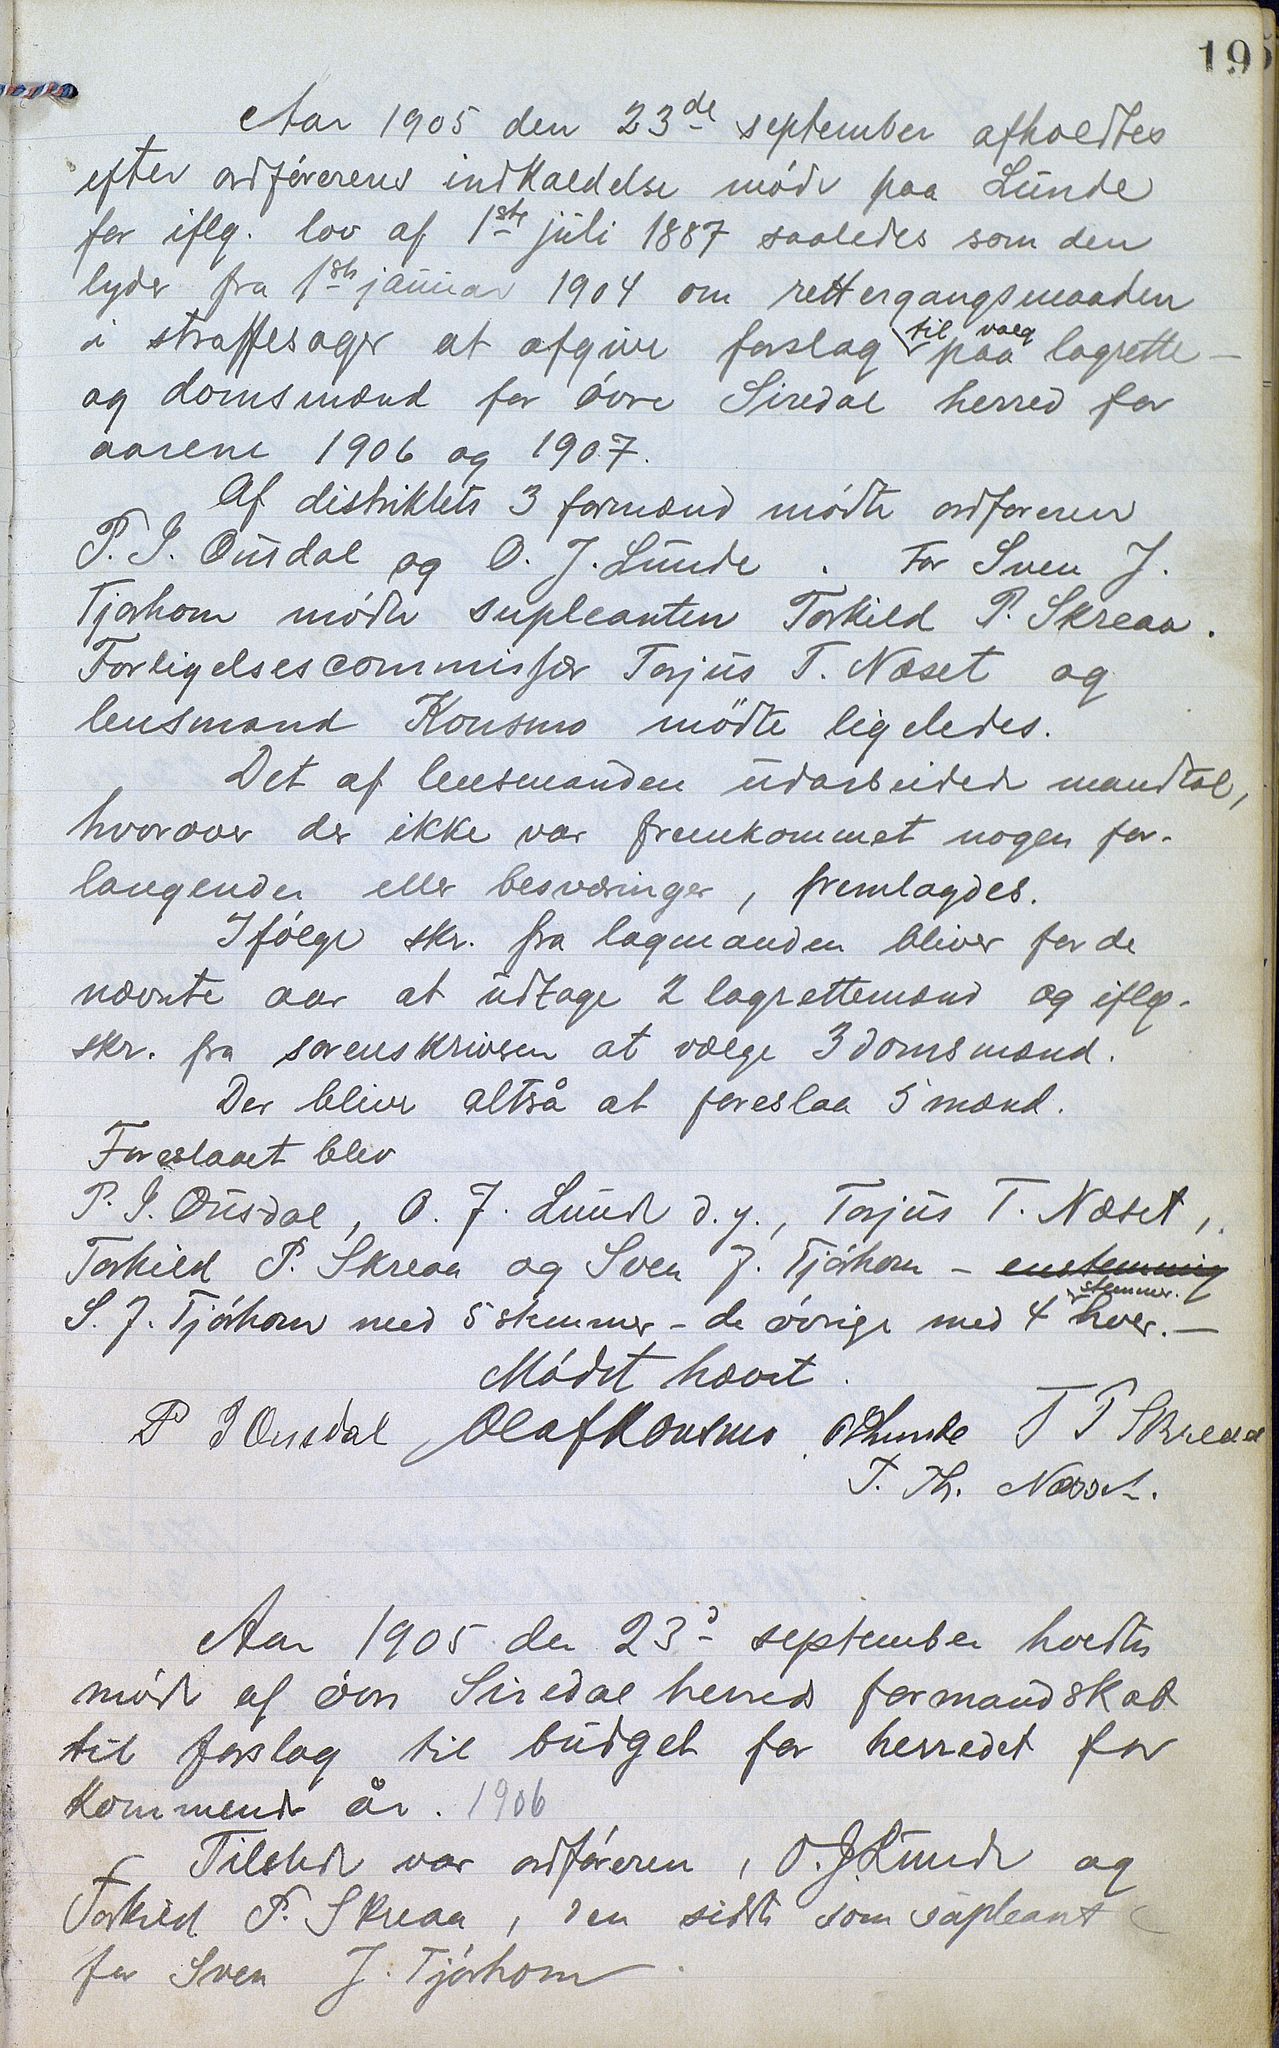 195
Aar 1905 den 23de september afholdtes
efter ordførerens indkaldelse møde paa Lunde
for iflg. lov af 1ste juli 1887 saaledes som den
lyder fra 1ste januar 1904 om rettergangsmaaden
i straffesager at afgive forslag til valg paa lagrette-
og domsmænd for øvre Siredal herred for
aarene 1906 og 1907.
Af distriktets 3 formænd mødte ordføreren
P. I. Ousdal og O. J. Lunde. For Sven J.
Tjørhom mødte supleanten Torkild P. Skreaa.
Forligelsescommissær Torjus T. Næset og
lensmand Konsmo mødte ligeledes.
Det af lensmanden udarbeidede mandtal,
hvorover der ikke var fremkommet nogen for-
langender eller besværinger, fremlagdes.
Ifølge skr. fra lagmanden bliver for de
nævnte aar at udtage 2 lagrettemænd og iflg.
skr. fra sorenskriveren at vælge 3 domsmænd.
Der bliver altså at foreslaa 5 mænd.
Foreslaaet blev
P. I. Ousdal, O. J. Lunde d.y., Torjus T. Næset,
Torkild P. Skreaa og Sven J. Tjørhom - enstemmig
S. J. Tjørhom med 5 stemmer - de øvrige med 4 stemmer hver. -
Mødet hævet.
P I Ousdal Olaf Konsmo O J Lunde T P Skreaa
T. Th. Næsset.
Aar 1905 den 23d september holdtes
møde af øvre Siredal herreds formandskab
til forslag til budget for herredet for
kommende år. 1906
Tilstede var ordføreren, O. J. Lunde og
Torkild P. Skreaa, den sidste som supleant
for Sven J. Tjørhom.